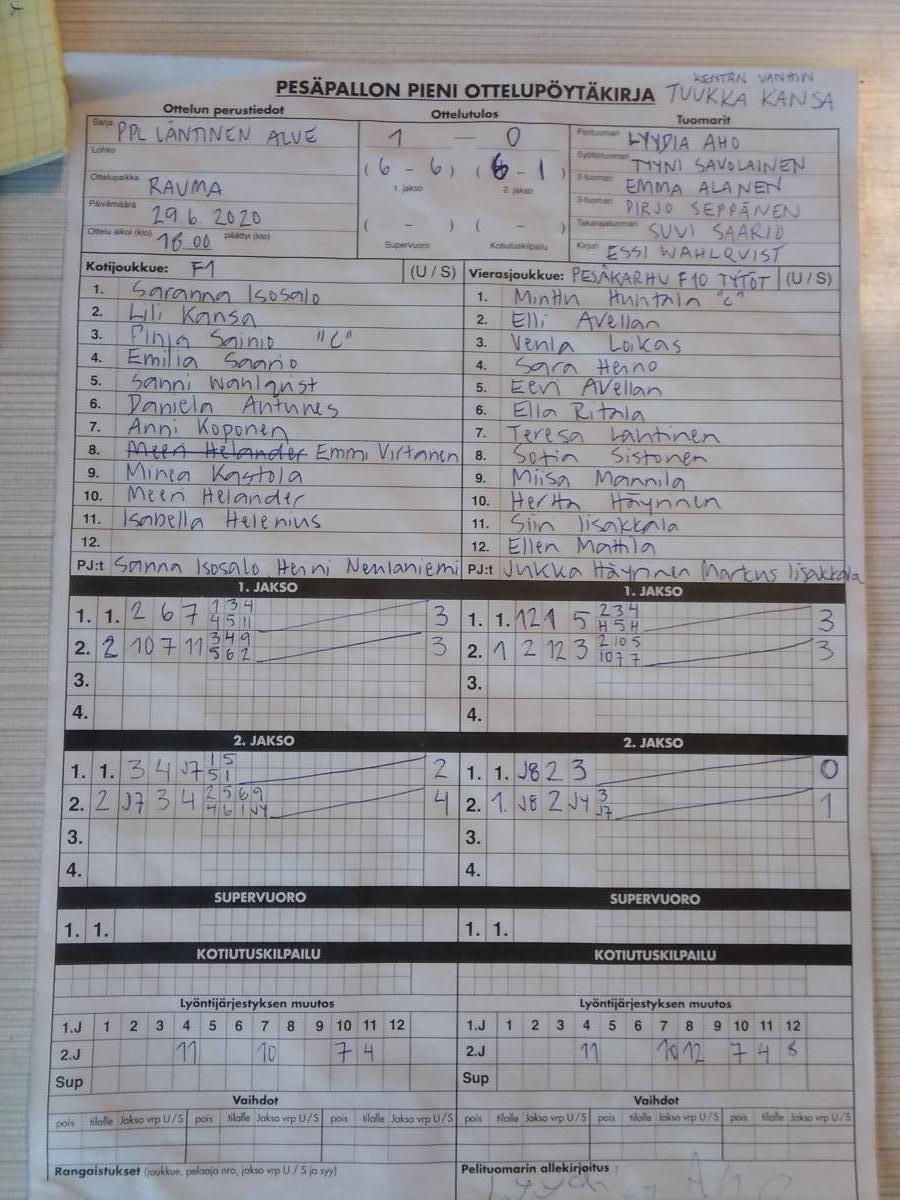 KENTÄN VANHIN
PESÄPALLON PIENI OTTELUPÖYTÄKIRJA TUUKKA KANSA
Ottelun perustiedot Ottelutulos Tuomarit
Sarja PPL LÄNTINEN ALUE 1 — 0 Pelituomari LYYDIA AHO
Lohko (6 - 6) (6 - 1) Syöttötuomari TYYNI SAVOLAINEN
Ottelupaikka RAUMA 1. jakso 2. jakso 2-tuomari EMMA ALANEN
Päivämäärä 29.6.2020 3-tuomari PIRJO SEPPÄNEN
( - ) ( - ) Takarajatuomari SUVI SAARIO
Ottelu alkoi (klo) 18.00 päättyi (klo) Supervuoro Kotiutuskilpailu Kirjuri ESSI WAHLQVIST
Kotijoukkue: F1 (U / S) Vierasjoukkue: PESÄKARHU F10 TYTÖT (U / S)
1. Saranna Isosalo 1. Minttu Huhtala "C"
2. Lili Kansa 2. Elli Avellan
3. Pinja Sainio "C" 3. Venla Loikas
4. Emilia Saario 4. Sara Heino
5. Sanni Wahlqvist 5. Eevi Avellan
6. Daniela Antunes 6. Ella Ritala
7. Anni Koponen 7. Teresa Lahtinen
8. Meeri Helander Emmi Virtanen 8. Sofia Sistonen
9. Minea Kastola 9. Miisa Mannila
10. Meeri Helander 10. Hertta Häyrinen
11. Isabella Helenius 11. Siiri Iisakkala
12. 12. Ellen Mattila
PJ:t Sanna Isosalo, Henni Nenlaniemi PJ:t Jukka Häyrinen Markus Iisakkala
1. JAKSO 1. JAKSO
1. 1. 2 6 7 1 3 4 3 1. 1. 12 1 5 2 3 4 3
4 5 11 4 5 4
2. 2 10 7 11 3 4 9 3 2. 1 2 12 3 2 10 5 3
5 6 2 10 7 7
3. 3.
4. 4.
2. JAKSO 2. JAKSO
1. 1. 3 4 J7 1 5 2 1. 1. J8 2 3 0
5 1
2. 2 J7 3 4 2 5 6 9 4 2. 1. J8 2 J4 3 1
4 6 1 J4 J7
3. 3.
4. 4.
SUPERVUORO SUPERVUORO
1. 1. 1. 1.
KOTIUTUSKILPAILU KOTIUTUSKILPAILU
Lyöntijärjestyksen muutos Lyöntijärjestyksen muutos
1.J 1 2 3 4 5 6 7 8 9 10 11 12 1.J 1 2 3 4 5 6 7 8 9 10 11 12
2.J 11 10 7 4 2.J 11 10 12 7 4 8
Sup Sup
Vaihdot Vaihdot
pois tilalle Jakso vrp U / S pois tilalle Jakso vrp U / S pois tilalle Jakso vrp U / S pois tilalle Jakso vrp U / S pois tilalle Jakso vrp U / S pois tilalle Jakso vrp U / S
Rangaistukset (joukkue, pelaaja nro, jakso vrp U / S ja syy) Pelituomarin allekirjoitus
Lyydia Aho